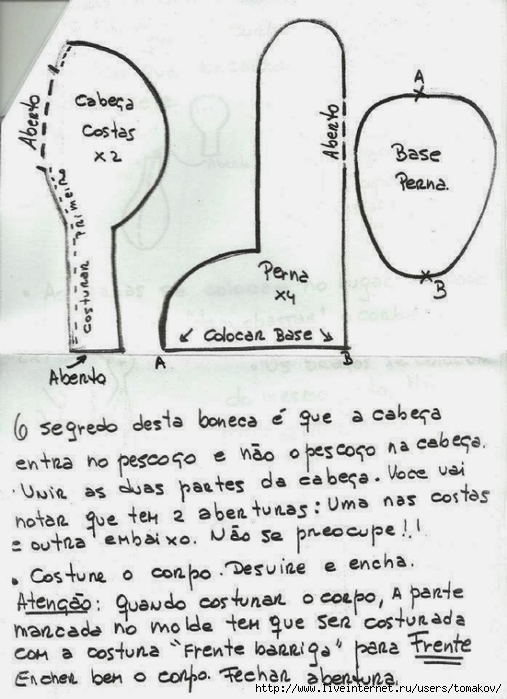 Cabeça
Costas
x2
Aberto
Costurar Primeiro
Aberto
Perna
x4
Aberto
Colocar Base
A
B
A
Base
Perna.
B
O segredo desta boneca é que a cabeça
entra no pescoço e não o pescoço na cabeça.
· Unir as duas partes da cabeça. Voce vai
notar que tem 2 aberturas: Uma nas costas
e outra embaixo. Não se preocupe!!!
• Costure o corpo. Desvire e encha.
Atenção: Quando costurar o corpo, A parte
marcada no molde tem que ser costurada
com a costura "Frente barriga" para Frente
Encher bem o corpo. Fechar abertura.
http://www.liveinternet.ru/users/tomakov/